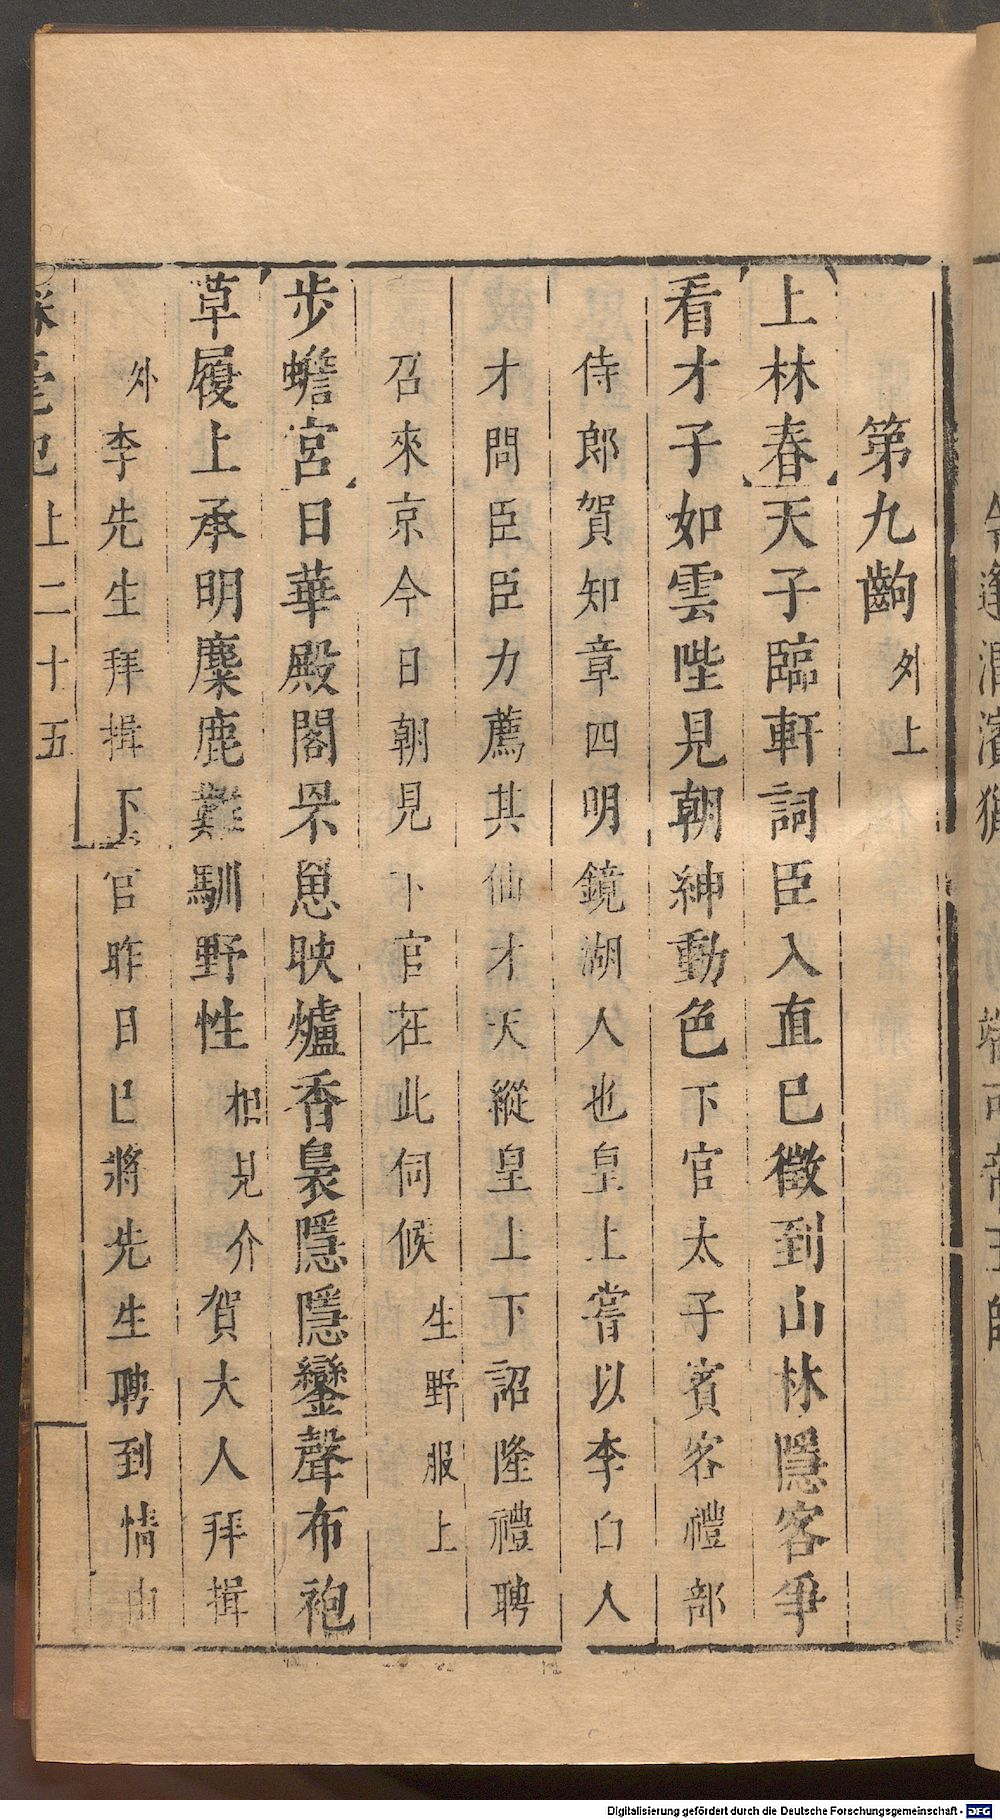 第九齣 外上
上林春天子臨軒詞臣入直已徵到山林隱客爭
看才子如雲陛見朝紳動色下官太子賓客禮部
侍郎賀知章四明鏡湖人也皇上嘗以李白人
才問臣臣力薦其仙才天縱皇上下詔隆禮聘
召來京今日朝見下官在此伺候 生野服上
步蟾宮日華殿閣罘罳映爐香裊隱隱鑾聲布袍
草履上承明麋鹿難馴野性 相見介 賀大人拜揖
外李先生拜揖下官昨日已將先生聘到情由
彩毫記上二十五
Digitalisierung gefördert durch die Deutsche Forschungsgemeinschaft - DFG